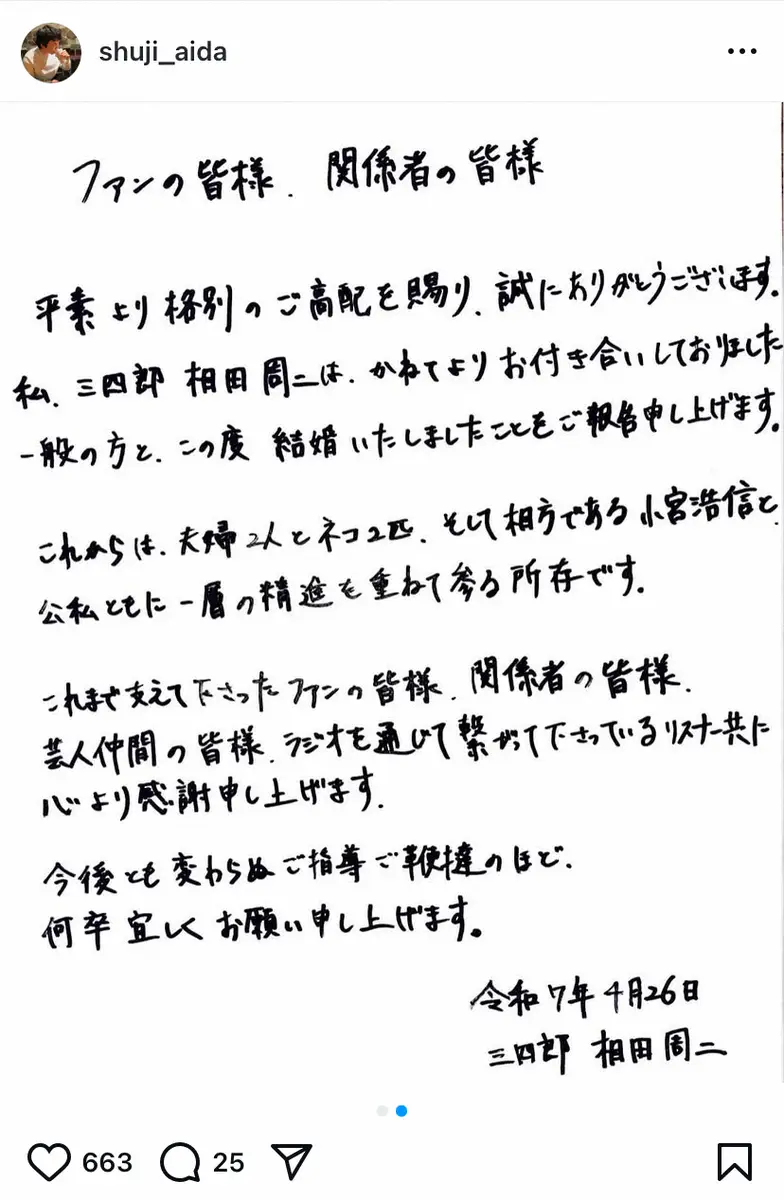 shuji_aida
ファンの皆様、関係者の皆様
平素より格別のご高配を賜り、誠にありがとうございます。
私、三四郎 相田周二は、かねてよりお付き合いしておりました
一般の方と、この度 結婚いたしましたことをご報告申し上げます。
これからは、夫婦2人とネコ2匹、そして相方である小宮浩信と、
公私ともに一層の精進を重ねて参る所存です。
これまで支えて下さったファンの皆様、関係者の皆様、
芸人仲間の皆様、ラジオを通じて繋がって下さっているリスナー共に
心より感謝申し上げます。
今後とも変わらぬご指導ご鞭撻のほど、
何卒宜しくお願い申し上げます。
令和7年4月26日
三四郎 相田周二
663 25